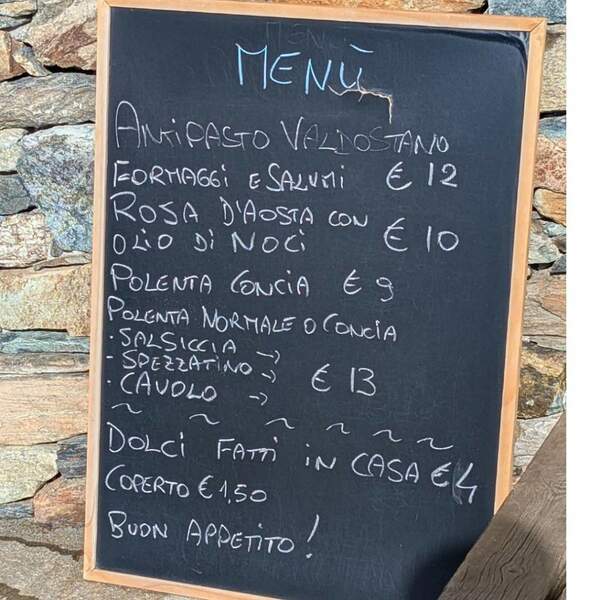 MENÙ
ANTIPASTO VALDOSTANO
FORMAGGI E SALUMI € 12
ROSA D'AOSTA CON
OLIO DI NOCI € 10
POLENTA CONCIA € 9
POLENTA NORMALE O CONCIA
· SALSICCIA →
- SPEZZATINO → € 13
· CAVOLO →
~ ~ ~ ~ ~ ~
DOLCI FATTI IN CASA € 4
COPERTO € 1,50
BUON APPETITO!